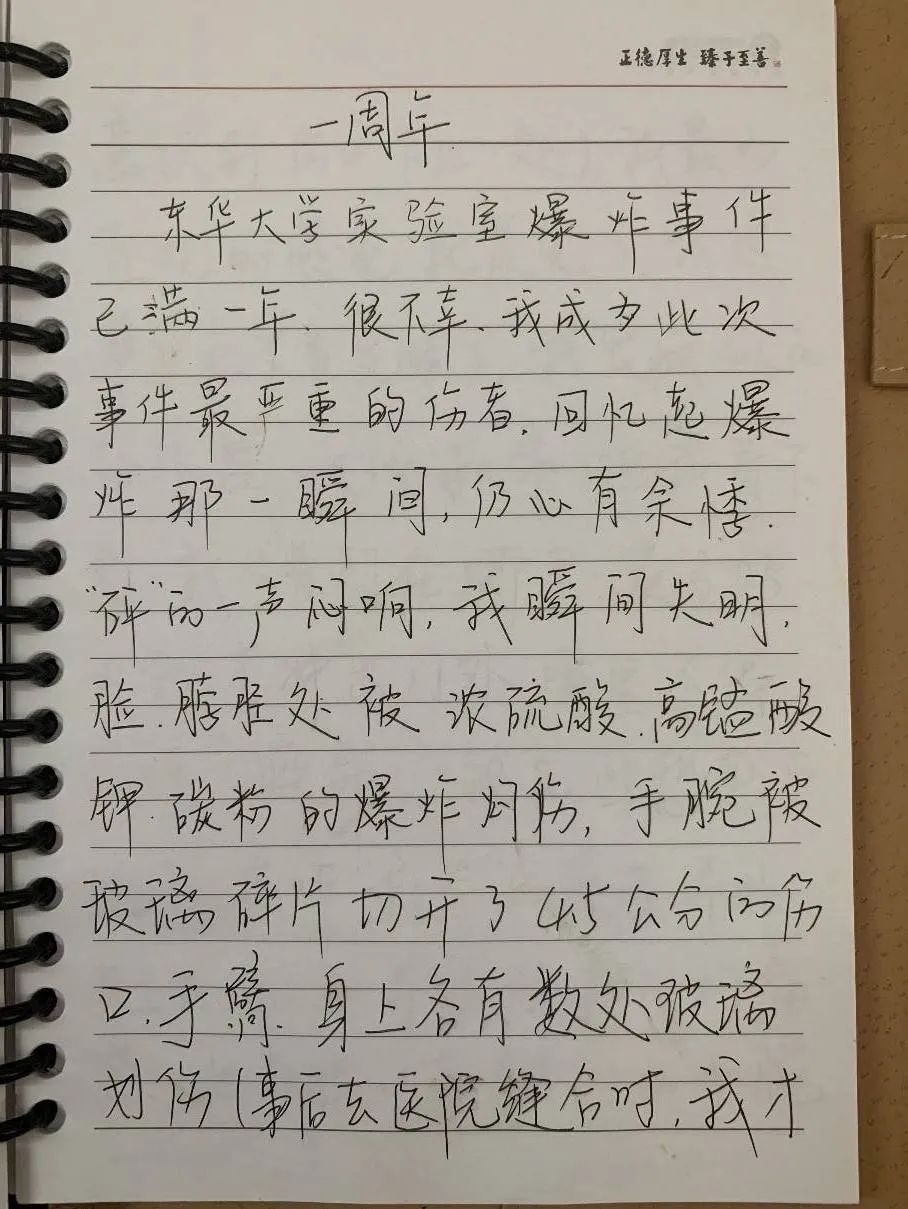 正德厚生 臻于至善
一周年
东华大学实验室爆炸事件
已满一年、很不幸、我成为此次
事件最严重的伤者，回忆起爆
炸那一瞬间，仍心有余悸.
“砰”的一声闷响，我瞬间失明，
脸、脖胫处被浓硫酸、高锰酸
钾、碳粉的爆炸灼伤，手腕被
玻璃碎片切开了4.5公分的伤
口，手臂、身上各有数处玻璃
划伤（事后去医院缝合时，我才